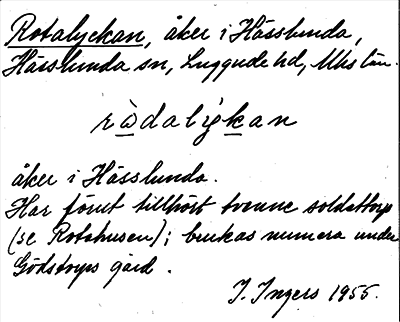 Rotalyckan, åker i Hässlunda,
Hässlunda sn, Luggude hd, Mhs län.
rà̱dalýḵan
åker i Hässlunda.
Har förut tillhört tvenne soldattorp
(se Rotahusen); brukas numera under
Gödstorps gård.
I. Ingers 1955.